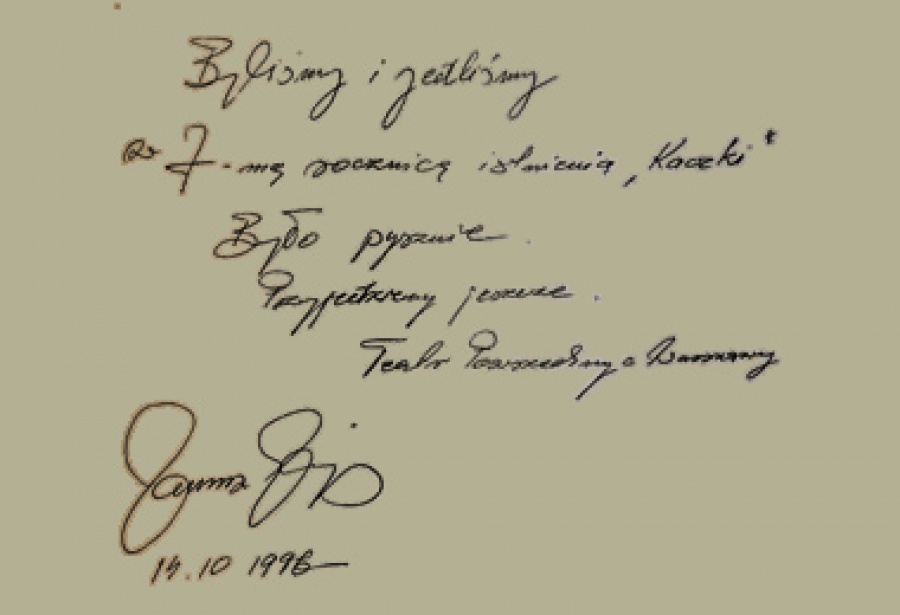 Byliśmy i jedliśmy
w 7-mą rocznicę istnienia „Kaczki”
Było pysznie.
Przyjedziemy jeszcze.
Teatr Powszechny z Warszawy
Janusz
14.10 1996